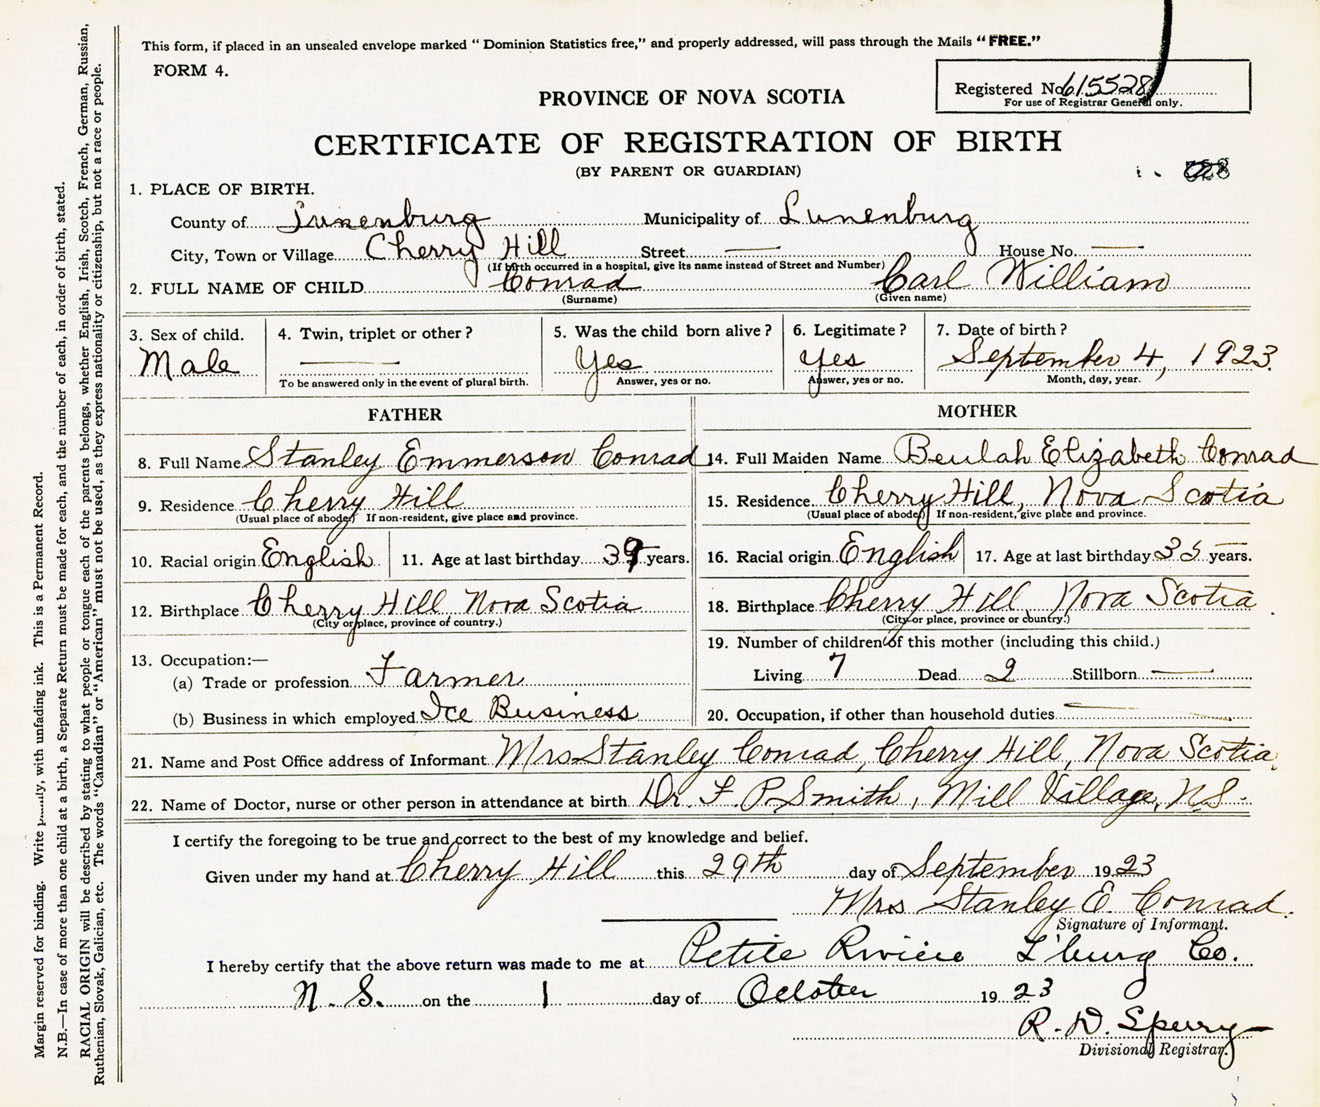 This form, if placed in an unsealed envelope marked "Dominion Statistics free," and properly addressed, will pass through the Mails "FREE."
FORM 4.
Registered No. 615528
For use of Registrar General only.
PROVINCE OF NOVA SCOTIA
CERTIFICATE OF REGISTRATION OF BIRTH
(BY PARENT OR GUARDIAN)
1. PLACE OF BIRTH.
County of Lunenburg Municipality of Lunenburg
City, Town or Village Cherry Hill Street — House No. —
(If birth occurred in a hospital, give its name instead of Street and Number)
2. FULL NAME OF CHILD Conrad Carl William
(Surname) (Given name)
3. Sex of child. 4. Twin, triplet or other? 5. Was the child born alive? 6. Legitimate? 7. Date of birth?
Male — Yes Yes September 4, 1923.
To be answered only in the event of plural birth. Answer, yes or no. Answer, yes or no. Month, day, year.
FATHER
8. Full Name Stanley Emmerson Conrad
9. Residence Cherry Hill
(Usual place of abode) If non-resident, give place and province.
10. Racial origin English 11. Age at last birthday 39 years.
12. Birthplace Cherry Hill Nova Scotia
(City or place, province of country.)
13. Occupation:—
(a) Trade or profession Farmer
(b) Business in which employed Ice Business
MOTHER
14. Full Maiden Name Beulah Elizabeth Conrad
15. Residence Cherry Hill, Nova Scotia
(Usual place of abode) If non-resident, give place and province.
16. Racial origin English 17. Age at last birthday 35 years.
18. Birthplace Cherry Hill, Nova Scotia
(City or place, province or country.)
19. Number of children of this mother (including this child.)
Living 7 Dead 2 Stillborn —
20. Occupation, if other than household duties —
21. Name and Post Office address of Informant Mrs Stanley Conrad, Cherry Hill, Nova Scotia.
22. Name of Doctor, nurse or other person in attendance at birth Dr. F. P. Smith, Mill Village, N.S.
I certify the foregoing to be true and correct to the best of my knowledge and belief.
Given under my hand at Cherry Hill this 29th day of September 1923
Mrs Stanley E. Conrad.
Signature of Informant.
I hereby certify that the above return was made to me at Petite Riviere L'burg Co.
N. S. on the 1 day of October 1923
R. D. Sperry
Divisional Registrar.
Margin reserved for binding. Write with unfading ink. This is a Permanent Record.
N.B.—In case of more than one child at a birth, a Separate Return must be made for each, and the number of each, in order of birth, stated.
RACIAL ORIGIN will be described by stating to what people or tongue each of the parents belongs, whether English, Irish, Scotch, French, German, Russian,
Ruthenian, Slovak, Galician, etc. The words "Canadian" or "American" must not be used, as they express nationality or citizenship, but not a race or people.